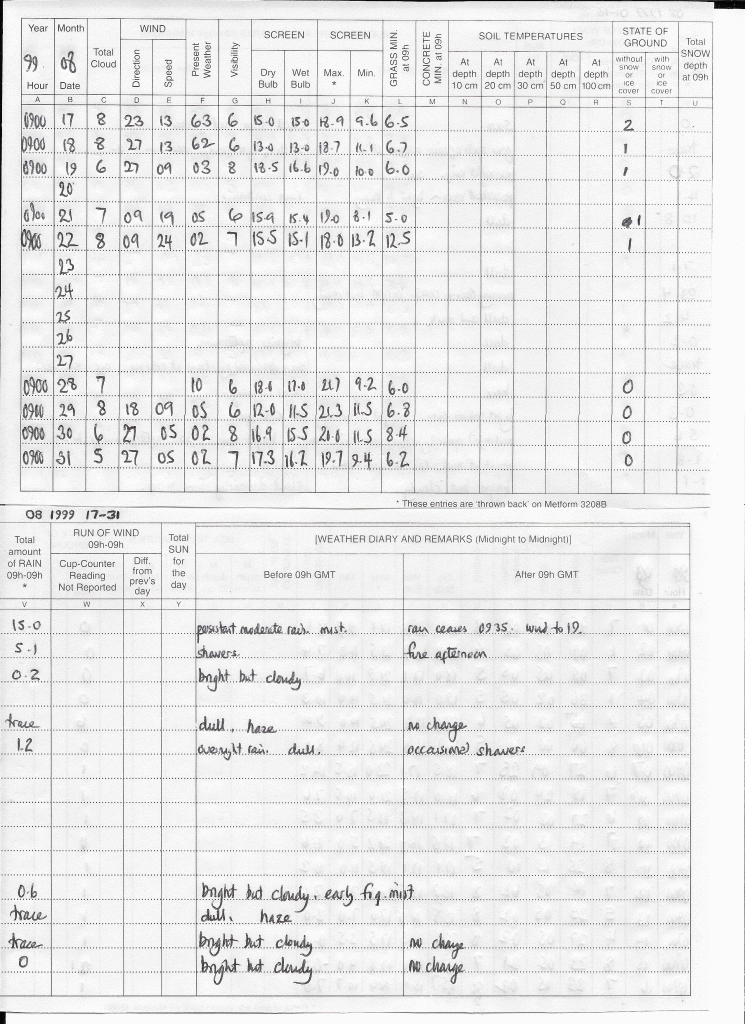 Year Month Total Cloud WIND Present Weather Visibility SCREEN SCREEN GRASS MIN. at 09h CONCRETE MIN. at 09h SOIL TEMPERATURES STATE OF GROUND Total SNOW depth at 09h
99 08 Direction Speed Dry Bulb Wet Bulb Max. * Min. At depth 10 cm At depth 20 cm At depth 30 cm At depth 50 cm At depth 100 cm without snow or ice cover with snow or ice cover
Hour Date
A B C D E F G H I J K L M N O P Q R S T U
0900 17 8 23 13 63 6 15.0 15.0 18.9 9.6 6.5 2
0900 18 8 27 13 62 6 13.0 13.0 18.7 11.1 6.7 1
0900 19 6 27 09 03 8 18.5 16.6 19.0 10.0 6.0 1
20
0900 21 7 09 19 05 6 15.9 15.4 19.0 8.1 5.0 1
0900 22 8 09 24 02 7 15.5 15.1 18.0 13.2 12.5 1
23
24
25
26
27
0900 28 7 10 6 18.0 17.0 21.7 9.2 6.0 0
0900 29 8 18 09 05 6 12.0 11.5 21.3 11.5 6.8 0
0900 30 6 27 05 02 8 16.9 15.5 20.0 11.5 8.4 0
0900 31 5 27 05 02 7 17.3 16.2 19.7 9.4 6.2 0
* These entries are 'thrown back' on Metform 3208B
08 1999 17-31
Total amount of RAIN 09h-09h * RUN OF WIND 09h-09h Total SUN for the day [WEATHER DIARY AND REMARKS (Midnight to Midnight)]
Cup-Counter Reading Not Reported Diff. from prev's day Before 09h GMT After 09h GMT
V W X Y
15.0 persistant moderate rain. mist. rain ceases 0935. wind to 19
5.1 showers fine afternoon
0.2 bright but cloudy
trace dull. haze no change
1.2 overnight rain. dull. occassional showers
0.6 bright but cloudy. early fog. mist
trace dull. haze
trace bright but cloudy no change
0 bright but cloudy no change